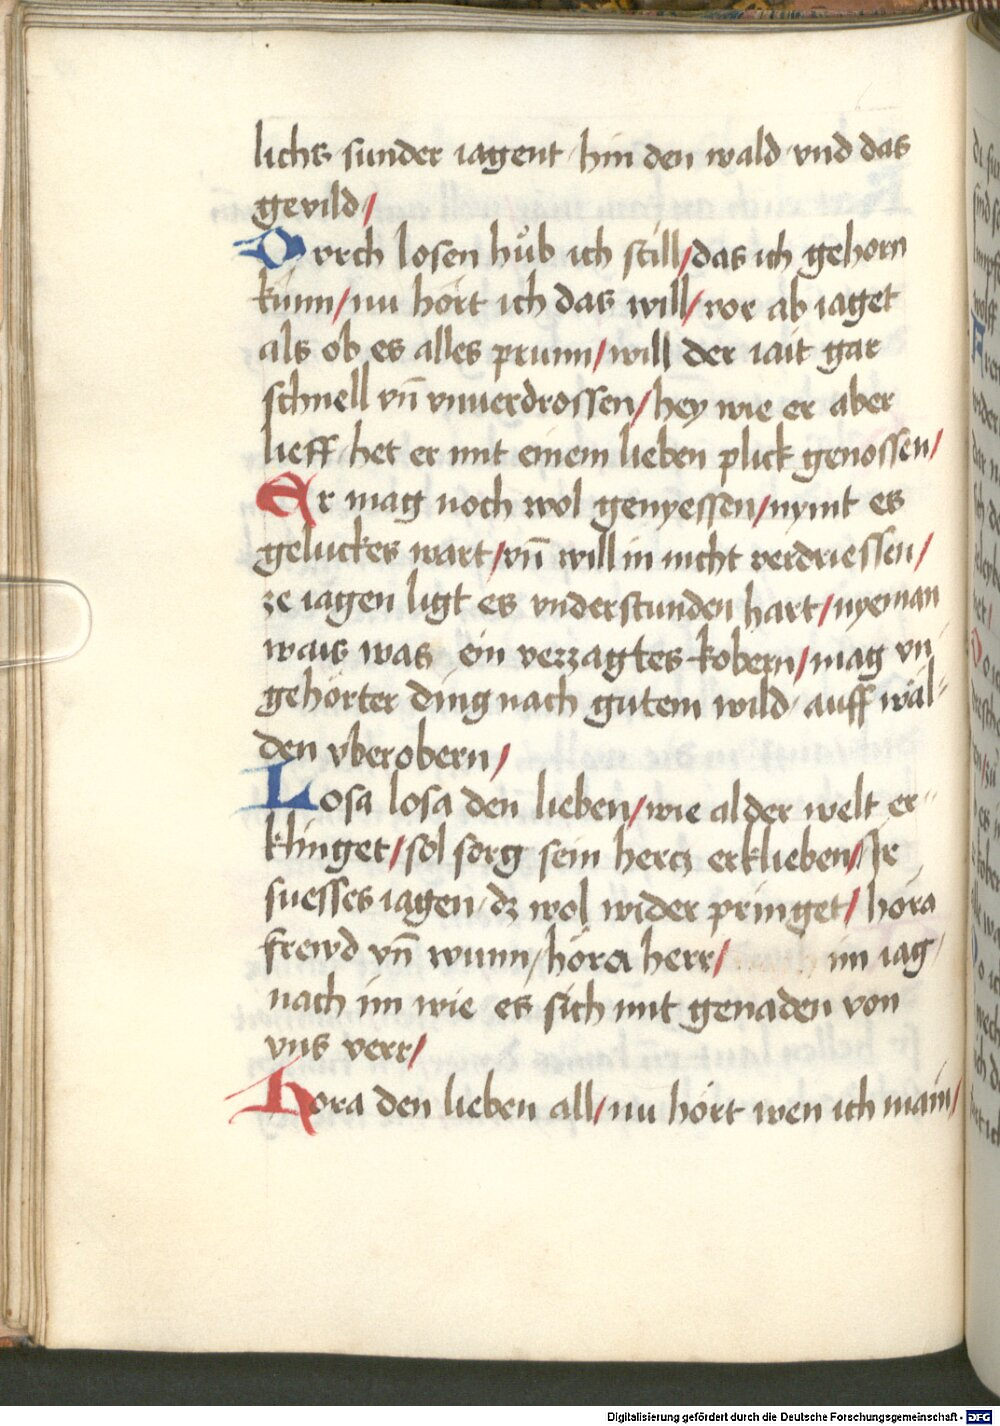 lichs sunder iagent hin den wald vnd das
gevild/
Durch losen hůb ich still/das ich gehorn
kunn/nu hört ich das will/vor ab iaget
als ob es alles prunn/will der iait gar
schnell vn̄ vnuerdrossen/hey wie er aber
lieff het er mit einem lieben plick genossen/
Er mag noch wol genyessen/nymt es
geluckes wart/vn̄ will in nicht verdriessen/
ze iagen ligt es vnderstunden hart/nyeman
wais was ein verzagtes kobern/mag vn
gehörter ding nach gutem wild auff wäl-
den vberobern/
Losa losa den lieben/wie al der welt er-
klinget/sol sorg sein hercz erklieben/Ir
suesses iagen dz wol wider pringet/hóra
frewd vn̄ wunn/hóra herr/ im iag
nach im wie es sich mit genaden von
vns verr/
Hora den lieben all/nu hört wen ich main/
Digitalisierung gefördert durch die Deutsche Forschungsgemeinschaft - DFG